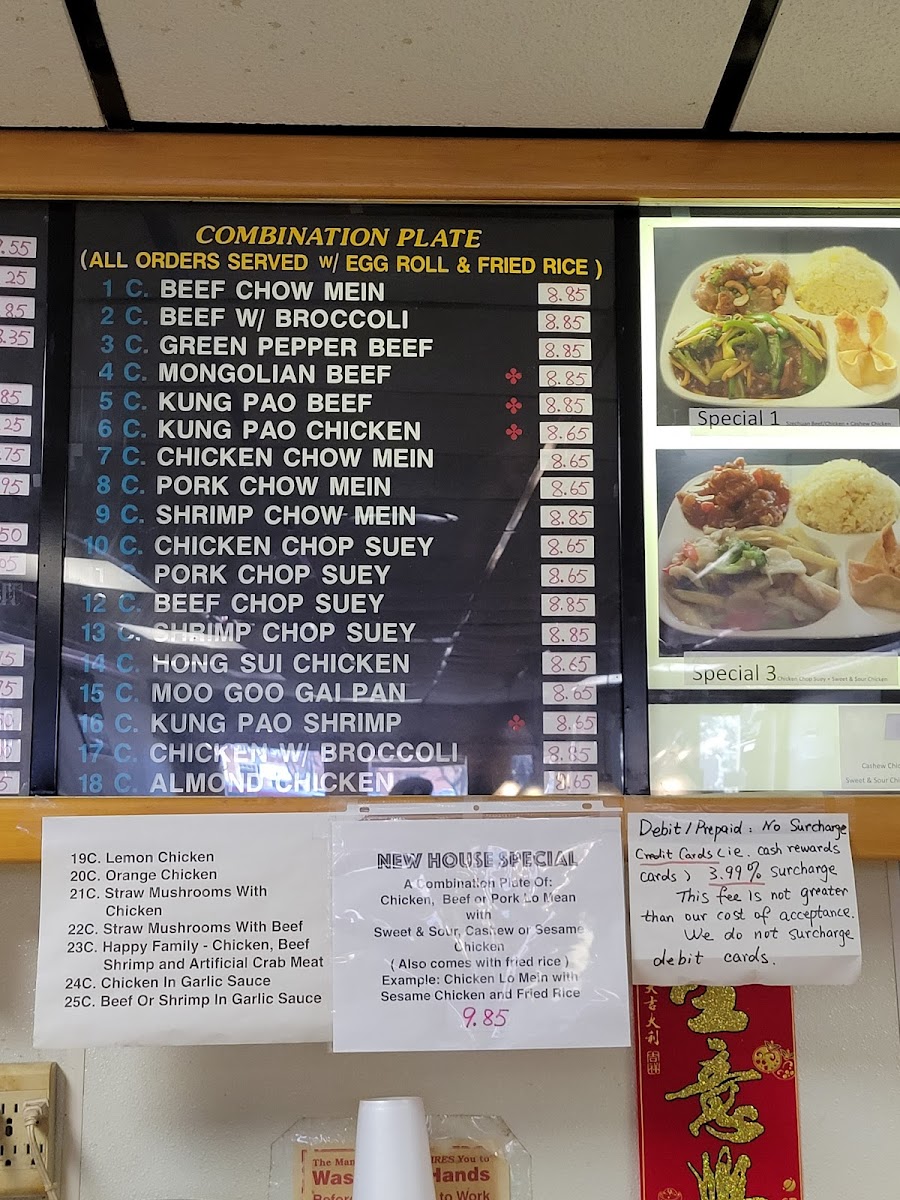 .55
25
.85
8.35
85
25
.75
95
50
05
75
95
5
COMBINATION PLATE
(ALL ORDERS SERVED W/ EGG ROLL & FRIED RICE )
1 C. BEEF CHOW MEIN 8.85
2 C. BEEF W/ BROCCOLI 8.85
3 C. GREEN PEPPER BEEF 8.85
4 C. MONGOLIAN BEEF 8.85
5 C. KUNG PAO BEEF 8.85
6 C. KUNG PAO CHICKEN 8.65
7 C. CHICKEN CHOW MEIN 8.65
8 C. PORK CHOW MEIN 8.65
9 C. SHRIMP CHOW MEIN 8.85
10 C. CHICKEN CHOP SUEY 8.65
1 PORK CHOP SUEY 8.65
12 C. BEEF CHOP SUEY 8.85
13 C. SHRIMP CHOP SUEY 8.85
14 C. HONG SUI CHICKEN 8.65
15 C. MOO GOO GAI PAN 8.65
16 C. KUNG PAO SHRIMP 8.65
17 C. CHICKEN W/ BROCCOLI 8.85
18 C. ALMOND CHICKEN 8.65
Special 1 Szechuan Beef/Chicken + Cashew Chicken
Special 3 Chicken Chop Suey + Sweet & Sour Chicken
Cashew Chic
Sweet & Sour Chi
19C. Lemon Chicken
20C. Orange Chicken
21C. Straw Mushrooms With
Chicken
22C. Straw Mushrooms With Beef
23C. Happy Family - Chicken, Beef
Shrimp and Artificial Crab Meat
24C. Chicken In Garlic Sauce
25C. Beef Or Shrimp In Garlic Sauce
NEW HOUSE SPECIAL
A Combination Plate Of:
Chicken, Beef or Pork Lo Mean
with
Sweet & Sour, Cashew or Sesame
Chicken
( Also comes with fried rice )
Example: Chicken Lo Mein with
Sesame Chicken and Fried Rice
9.85
Debit/Prepaid: No Surcharge
Credit Cards (ie. cash rewards
cards) 3.99% surcharge
This fee is not greater
than our cost of acceptance.
We do not surcharge
debit cards.
大吉大利
吉祥
生意
The Man IRES You to
Was Hands
Before to Work